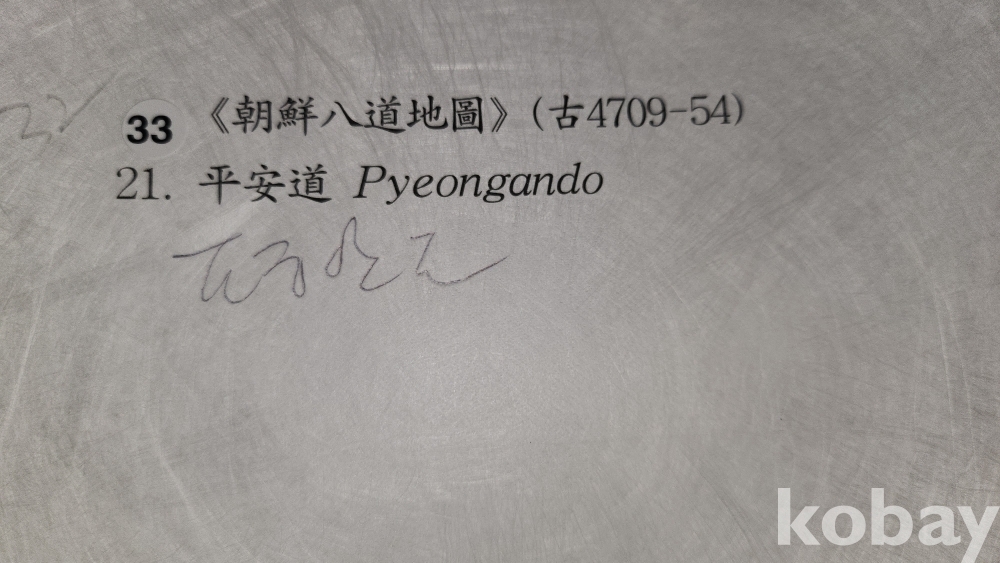 33 《朝鮮八道地圖》(古4709-54)
21. 平安道 Pyeongando
평안도
kobay